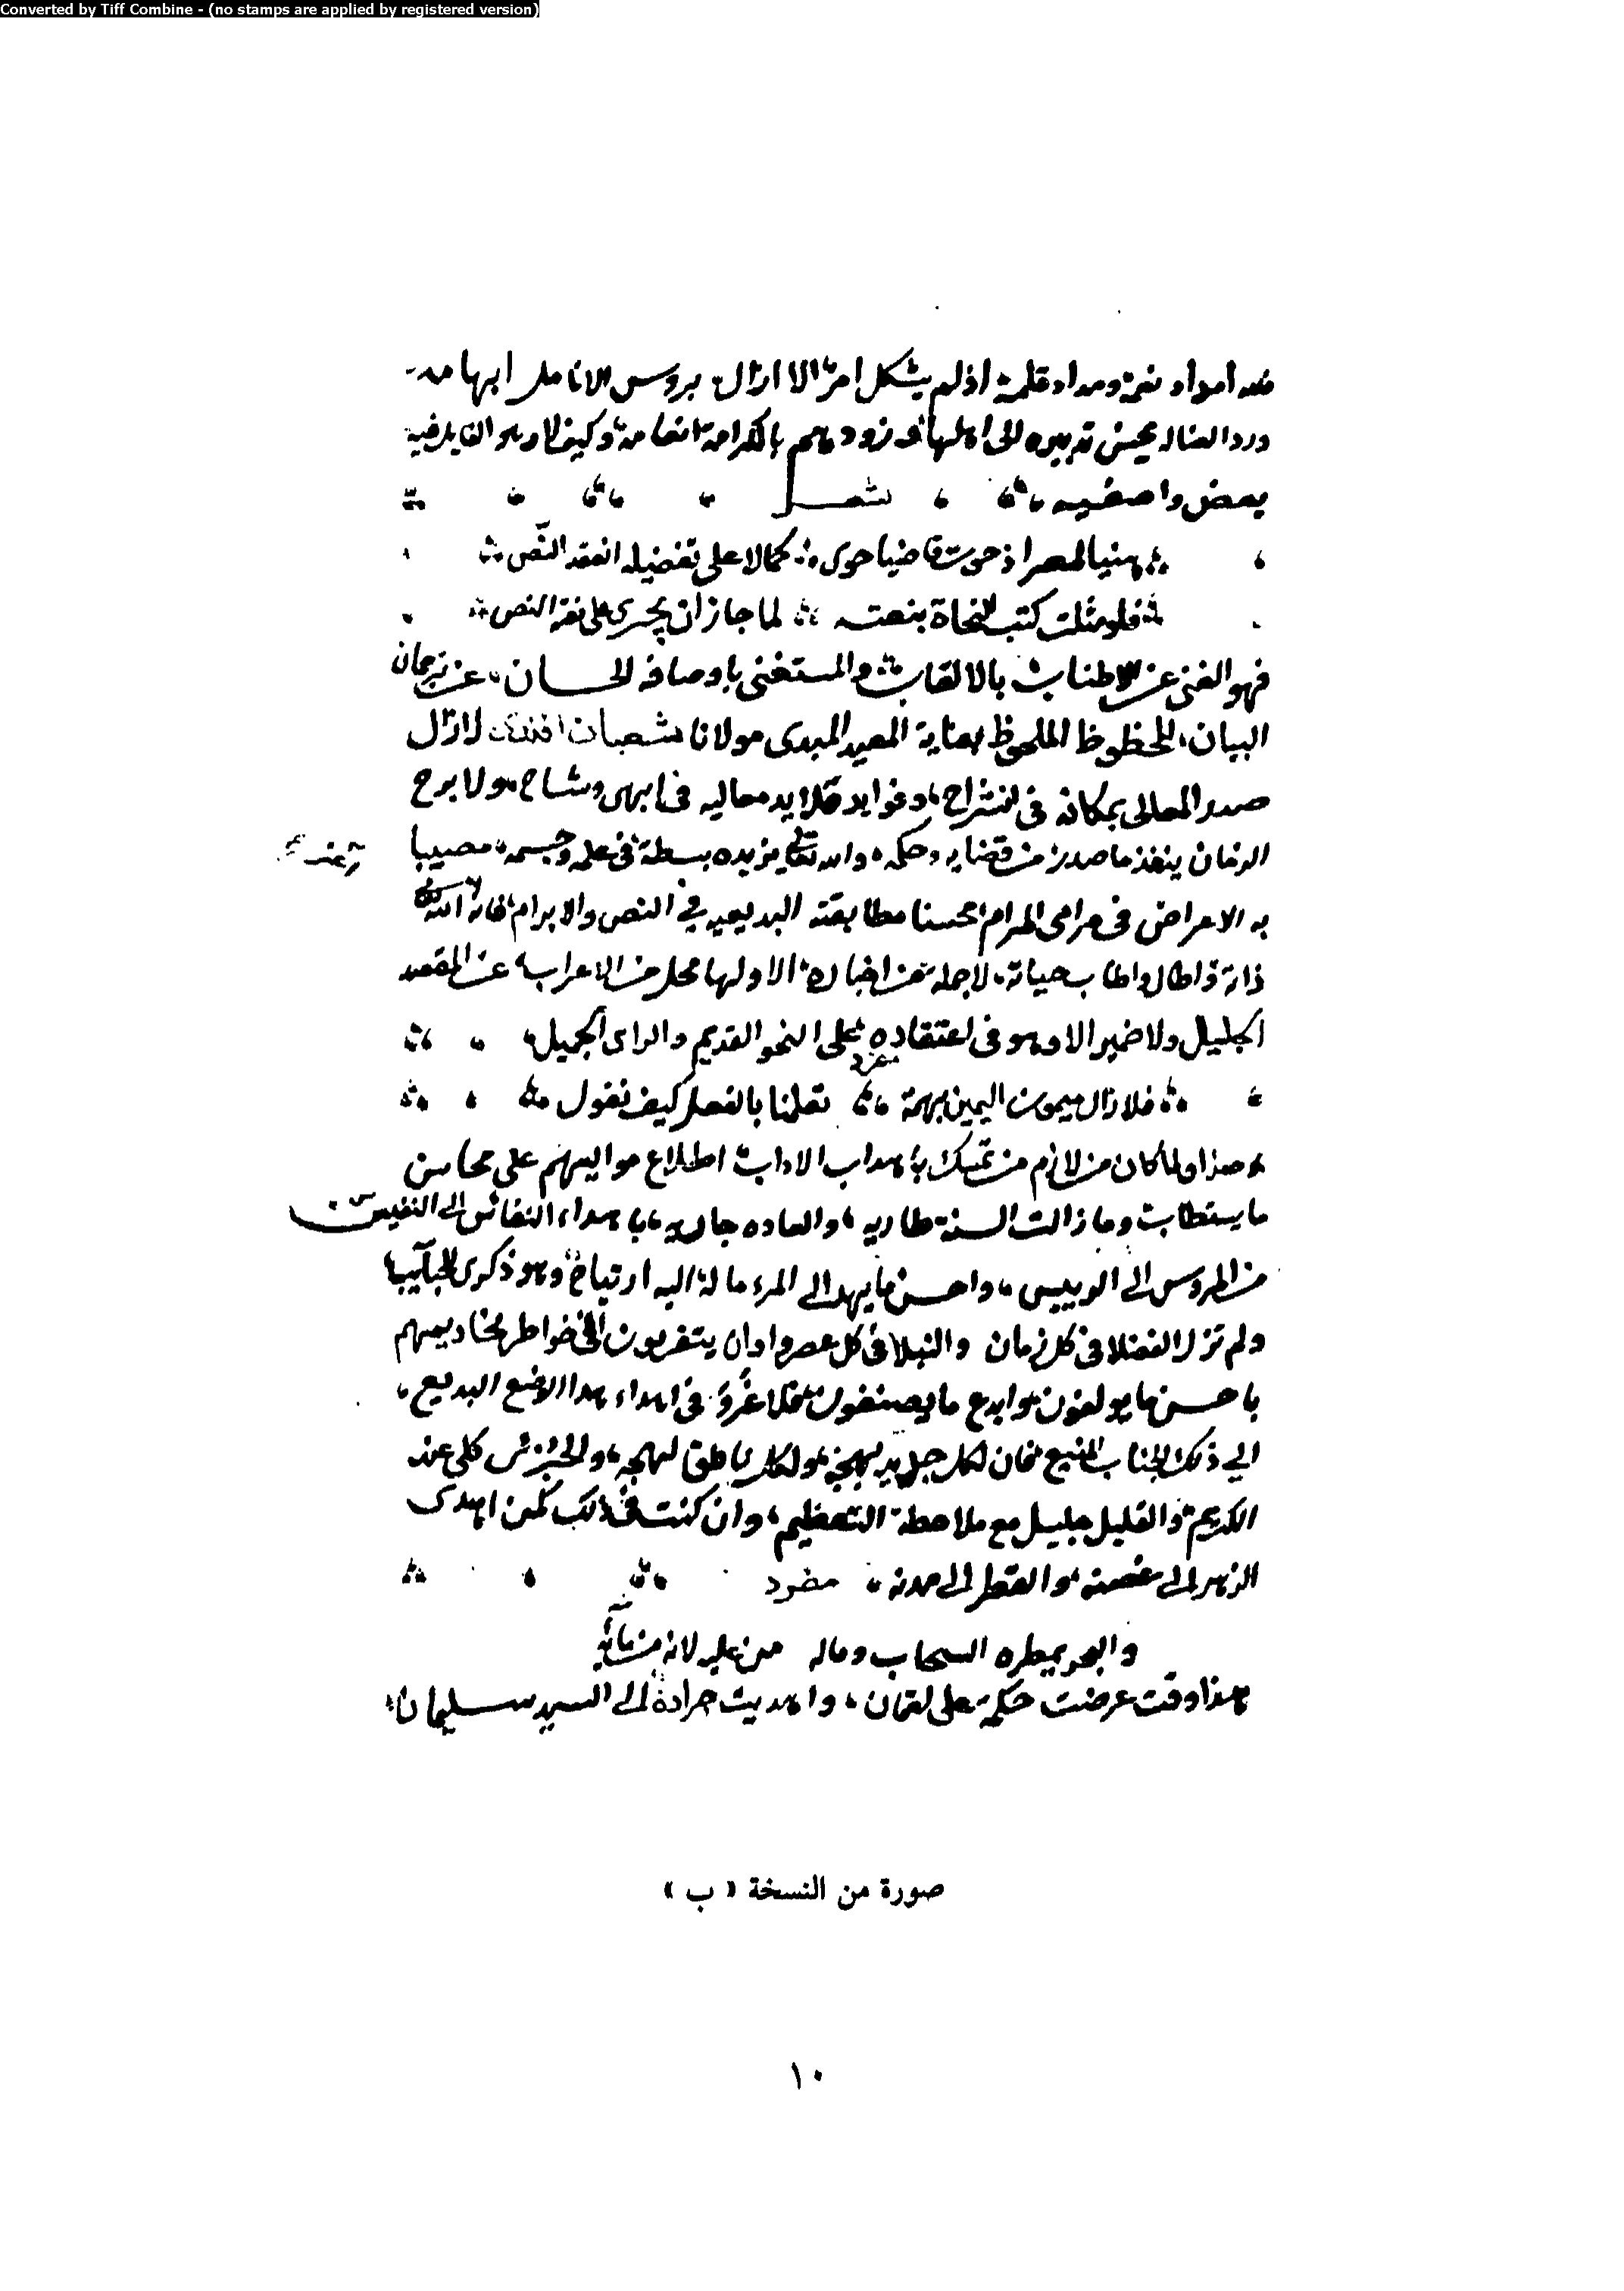 Converted by Tiff Combine - (no stamps are applied by registered version)
امواد ومداد قلمه اذ لم يشكل امر الا ازال بروس الانامل ابهامه
درد العنا بحسن تدبيره الى اهلها زودهم بالكرامة انعامه وكيف لا وهو القايل فيه
بعض واصفيه شعر
هنيا لمصر اذ حوت قاضيا حوى كمالا على تفضيله انعقد النص
فلو مثلت كتب النحاة بنعته لما جاز ان يجرى على نعته النص
فهو الغنى عن الاطناب بالالقاب والمستغنى باوصافه الحسان عن ترجمان
البيان الملحوظ بعناية المعيد المبدى مولانا شعبان افندى لازال
صدر المعالى بمكانه فى انشراح وفوايد قلايد معاليه فى ابهى وشاح ولا برح
الزمان ينفذ ما صدر من قضايه وحكمه والله تعالى يزيده بسطة فى علمه وجسمه مصيبا
به الاعراض فى مرامى المرام محسنا مطابقته البديعيه فى النص والابرام الله
ذاته واطال واطاب حياته لا جملة من اخباره الا ولها محل من الاعراب عن المقصد
الجليل ولا ضمير الا وهو فى اعتقاده على النحو القديم والراى الجميل
مفرد
فلا زال ميمون اليمين بهمة تعلمنا بالفعل كيف نقول
هذا ولما كان من لازم من تمسك باهداب الاداب اطلاع مواليهم على محاسن
ما يستطاب وما زالت السنة طاريه والعاده جاريه باهداء النفائس الى النفيس
من المروس الى الرييس واحسن ما يهدى الى المرء ماله اليه ارتياح وهو ذكرى
ولم تزل الفضلا فى كل زمان والنبلا فى كل عصر واوان يتقربون الى خواطر مخاديمهم
باحسن ما يولفون وابدع ما يصنفون فلا غرو فى اهداء هذا الوضع البديع
الى ذلك الجناب المنيع فان لكل جديد بهجة ولكل ناطق لهجه عند
الكريم والقليل جليل مع ملاحظة التعظيم وان كنت فى ذلك كمن اهدى
الزهر الى غصنه والقطر الى مفرد
والبحر يمطره السحاب وماله من عليه لانه من مائه
هذا وقت عرضت حكمة على لقمان واهديت جرادة الى السيد سليمان
صورة من النسخة « ب »
١٠